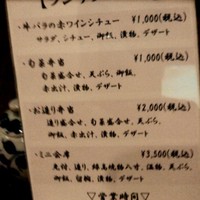 ・牛バラの赤ワインシチュー ¥1,000(税込)
サラダ、シチュー、御飯、漬物、デザート
・旬菜弁当 ¥1,000(税込)
旬菜盛合せ、天ぷら、御飯、
赤出汁、漬物、デザート
・お造り弁当 ¥2,000(税込)
造り盛合せ、旬菜盛合せ、天ぷら、
御飯、赤出汁、漬物、デザート
・ミニ会席 ¥3,500(税込)
先付、造り、八寸、温物、天ぷら、
御飯、留椀、漬物、デザート
▽営業時間▽